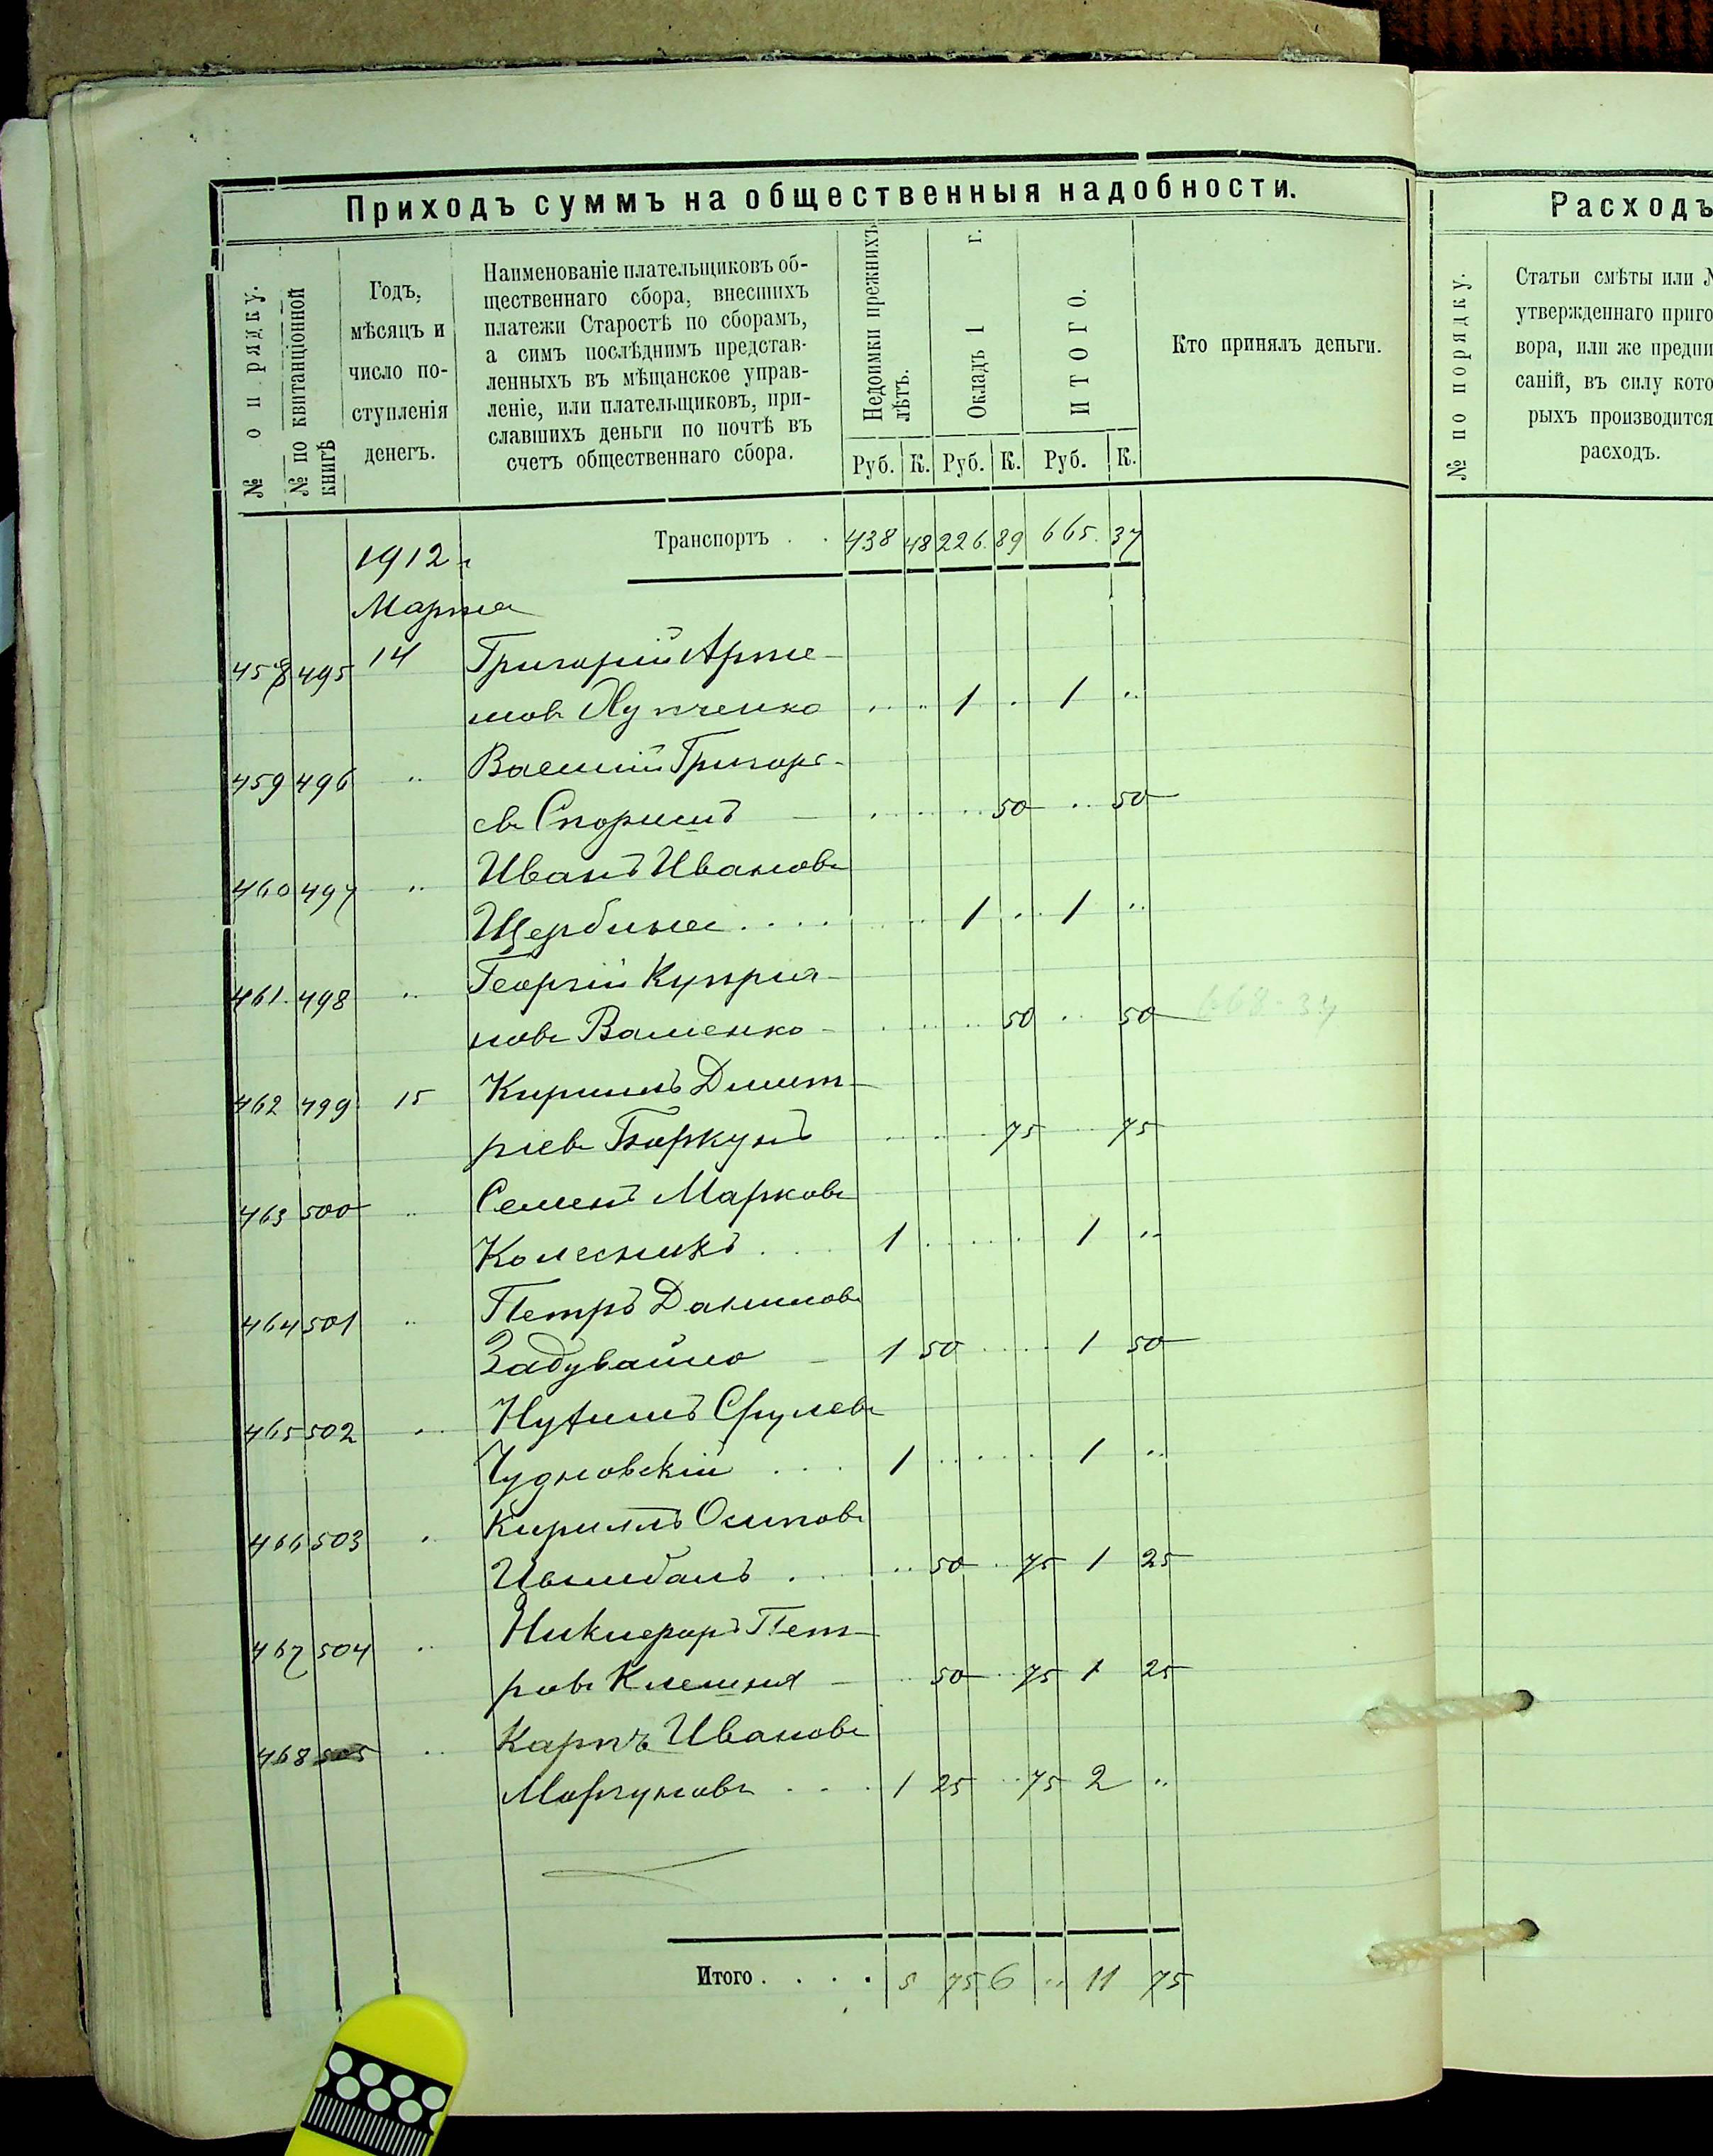 Приходъ суммъ на общественныя надобности.
№ по рядку.
№ по квитанціонной книгѣ
Годъ,
мѣсяцъ и
число по-
ступленія
денегъ.
Наименованіе плательщиковъ об-
щественнаго сбора, внесшихъ
платежи Старостѣ по сборамъ,
а симъ послѣднимъ представ-
ленныхъ въ мѣщанское управ-
леніе, или плательщиковъ, при-
славшихъ деньги по почтѣ въ
счетъ общественнаго сбора.
Недоимки прежнихъ лѣтъ.
Окладъ 1 г.
ИТОГО.
Кто принялъ деньги.
Руб. К. Руб. К. Руб. К.
Транспортъ . . 438 48 226. 89 665. 37
1912 г.
Марта
458 495 14 Григорій Арте-
мов 1 . 1 "
459 496 " Василій Григорь-
ев Споришъ 50 .. 50
460 497 " Иванъ Иванов
Щербина .... 1 .. 1 "
461. 498 " Георгій Купрія-
нов Ваменко 50 .. 50
668-37
462 499 15 Кириллъ Димит-
ріев Боркунъ 75 75
463 500 " Семенъ Марков
Колесникъ . . 1 1 "
464 501 " Петръ Данилов
Задувайло 1 50 1 50
465 502 " Нухимъ Срулев
Чудновскій . . . 1 1 "
466 503 " Кириллъ Осипов
Цымбалъ . . 50 75 1 25
467 504 " Никифоръ Пет-
ров Клешня 50 75 1 25
468 505 " Карпъ Иванов
Моргунов . . . 1 25 75 2 "
Итого . . . . 5 75 6 .. 11 75
Расходъ
№ по порядку.
Статьи смѣты или №
утвержденнаго приго
вора, или же предпи
саній, въ силу кото
рыхъ производится
расходъ.